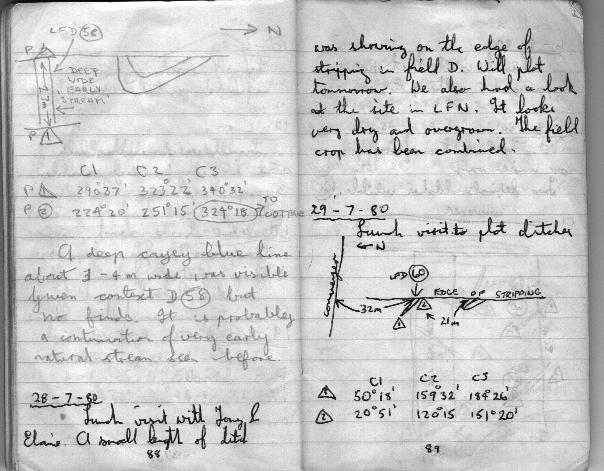 LFD 58
N
P 1
DEEP
WIDE
EARLY
STREAM
P 1
C1 C2 C3
P 1 290°37' 323°22' 340°32'
P 2 224°20' 251°15' 324°18' TO
A deep cayey blue line
about 3-4 m wide was visible
Given context D 58 but
no finds. It is probably
a continuation of very early
natural stream seen before
28-7-80
Lunch visit with Tony &
Elaine. A small length of ditch
88
was showing on the edge of
stripping in field D. Will plot
tomorrow. We also had a look
at the site in LFN. It looks
very dry and overgrown. The field
crop has been combined.
29-7-80
Lunch visit to plot ditches
← N
conveyor
LFD 60
EDGE OF STRIPPING
32m
2
1
21m
C1 C2 C3
1 50°18' 159°32' 184°26'
2 20°51' 120°15 151°20'
89